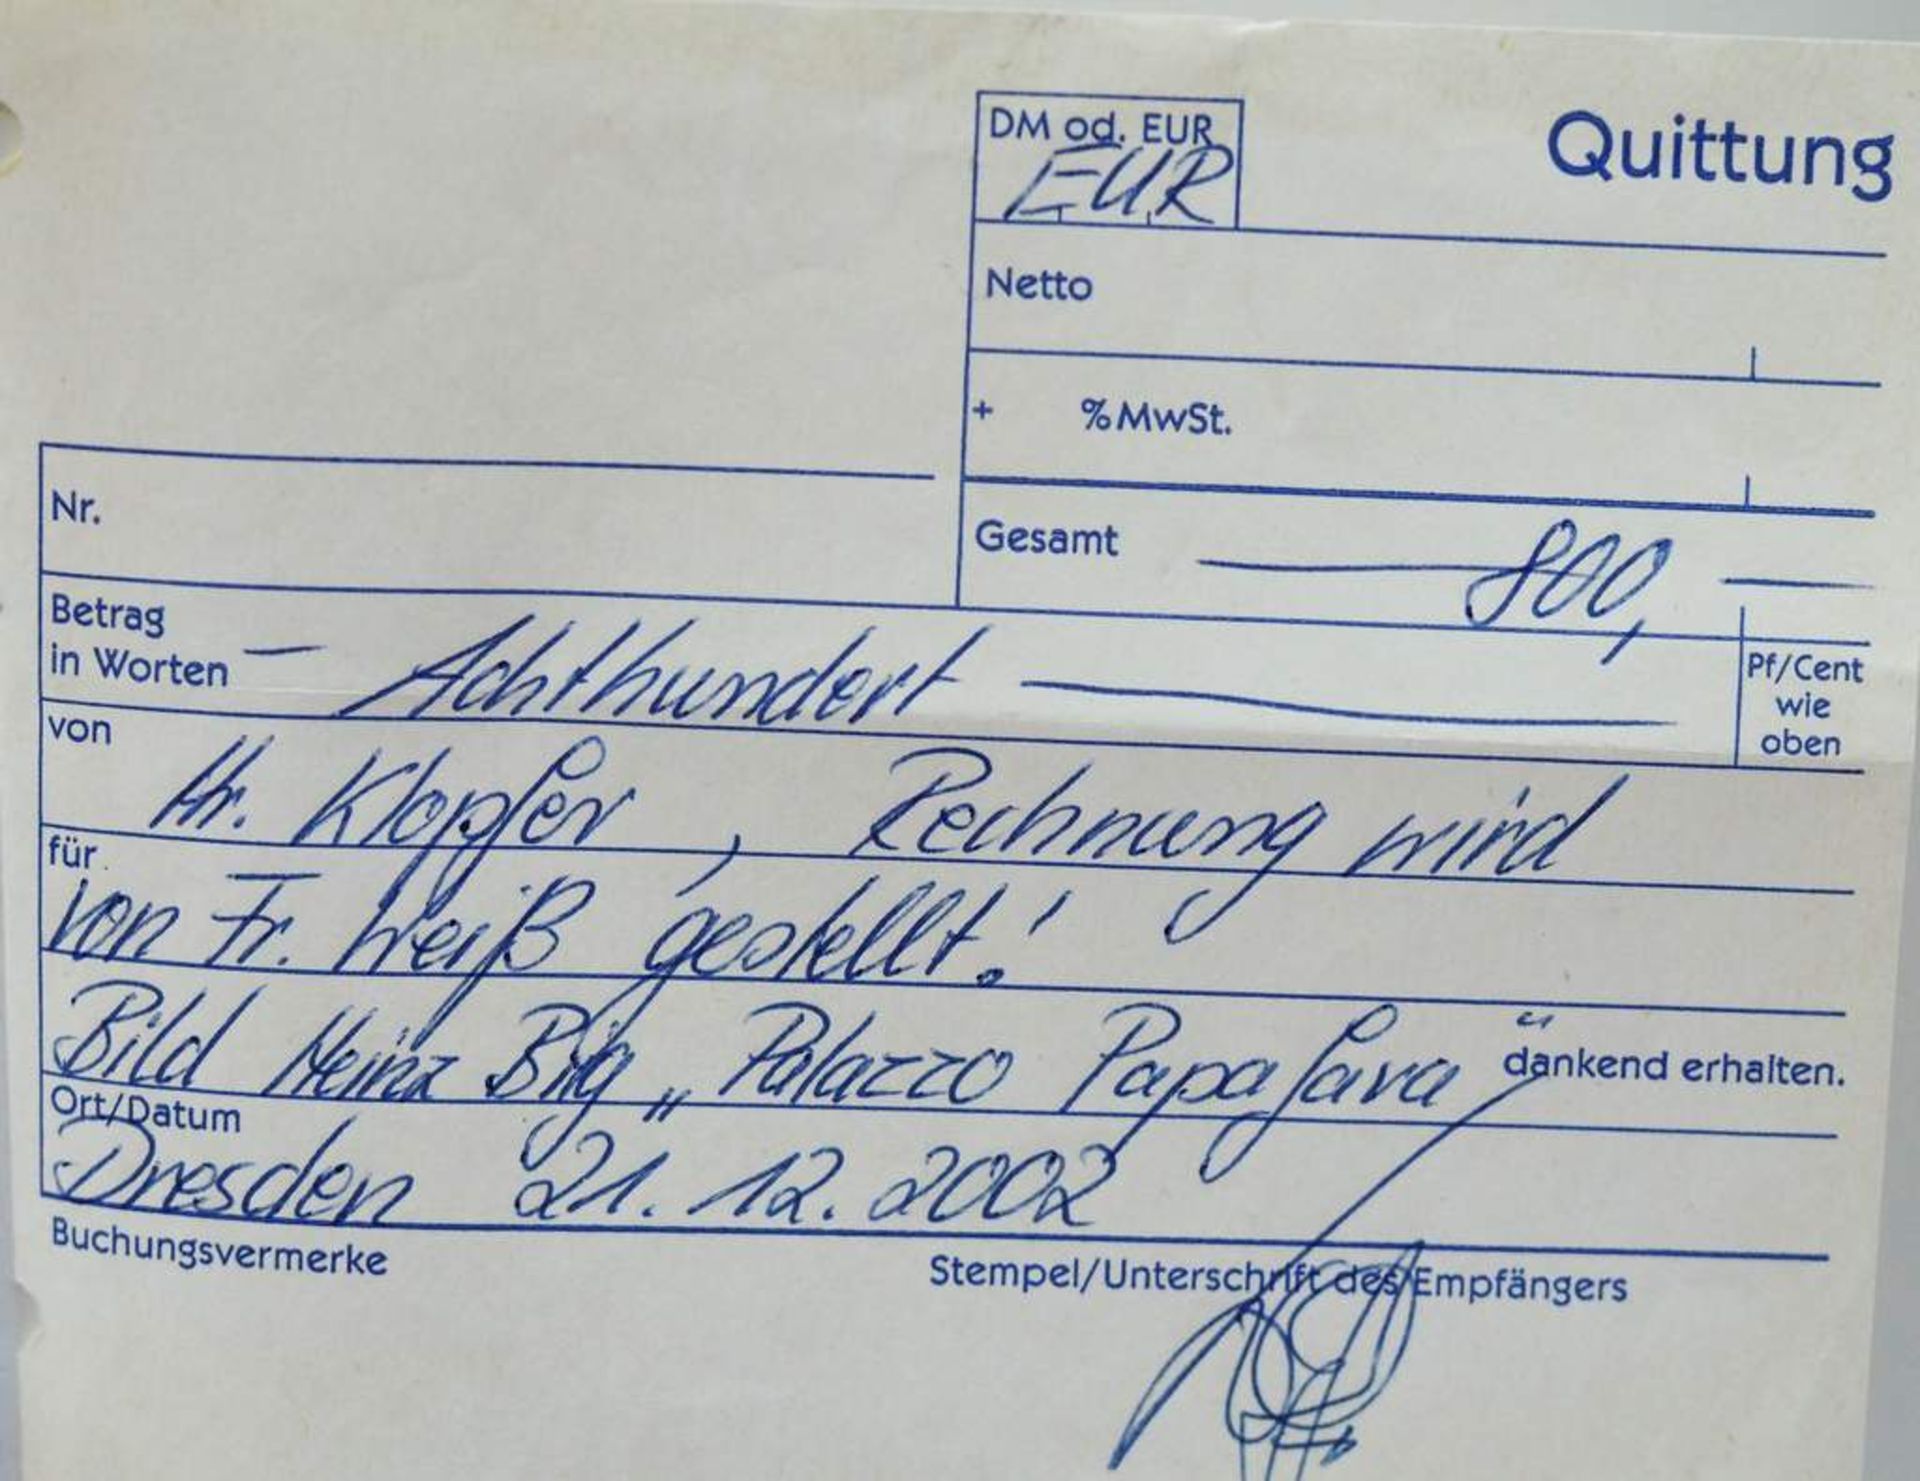 DM od. EUR Quittung
EUR
Netto
+ %MwSt.
Nr.
Gesamt — 800, —
Betrag
in Worten — Achthundert —
Pf/Cent
wie
oben
von
Hr. Klopfer, Rechnung wird
für
von Fr. Weiß gestellt!
Bild Heinz „Palazzo Papafava“ dankend erhalten.
Ort/Datum
Dresden 21.12.2002
Buchungsvermerke
Stempel/Unterschrift des Empfängers